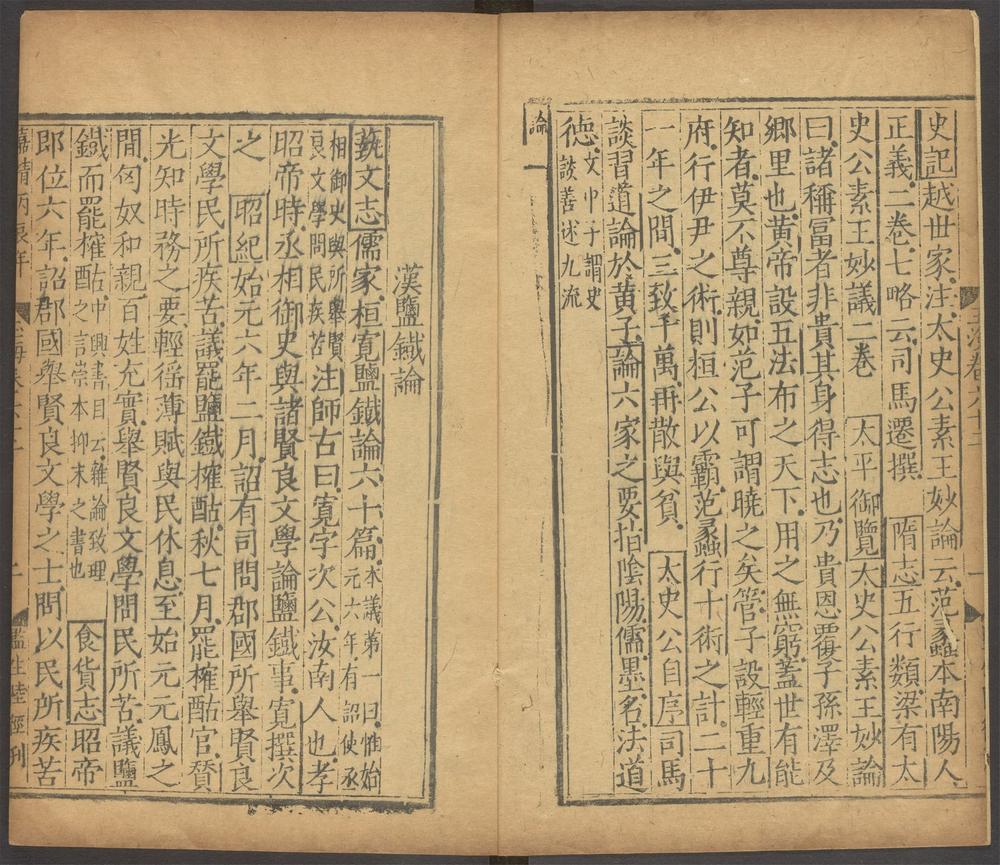 史記越世家注太史公素王妙論云范蠡本南陽人
正義二卷七略云司馬遷撰 隋志五行類梁有太
史公素王妙議二卷 太平御覽太史公素王妙論
曰諸稱富者非貴其身得志也乃貴恩覆子孫澤及
鄉里也黃帝設五法布之天下用之無窮蓋世有能
知者莫不尊親如范子可謂曉之矣管子設輕重九
府行伊尹之術則桓公以霸范蠡行十術之計二十
一年之間三致千萬再散與貧 太史公自序司馬
談習道論於黃子論六家之要指陰陽儒墨名法道
德文中子謂史
談善述九流
論
漢鹽鐵論
藝文志儒家桓寬鹽鐵論六十篇本議第一曰惟始
元六年有詔使丞
相御史與所舉賢
良文學問民疾苦
注師古曰寬字次公汝南人也孝
昭帝時丞相御史與諸賢良文學論鹽鐵事寬撰次
之 昭紀始元六年二月詔有司問郡國所舉賢良
文學民所疾苦議罷鹽鐵榷酤秋七月罷榷酤官贊
光知時務之要輕徭薄賦與民休息至始元元鳳之
間匈奴和親百姓充實舉賢良文學問民所苦議鹽
鐵而罷榷酤中興書目云雜論致理
之言崇本抑末之書也
食貨志昭帝
即位六年詔郡國舉賢良文學之士問以民所疾苦
嘉靖丙辰年
監生陸經刊